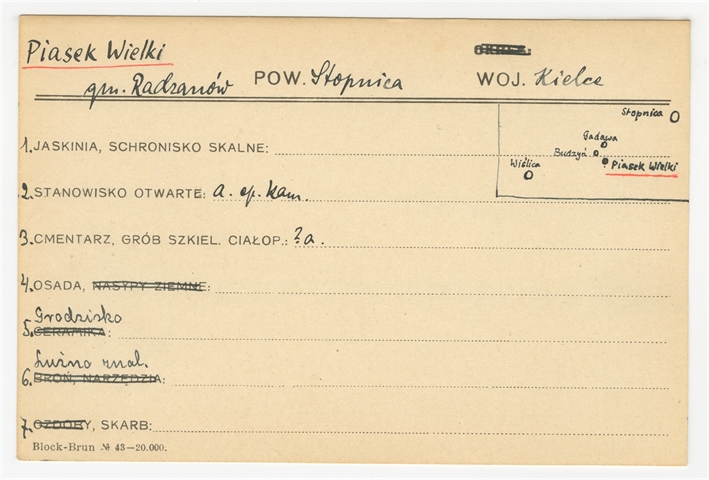 Piasek Wielki
gm. Radzanów POW. Stopnica WOJ. Kielce
Stopnica
Gadawa
Budzyń
Wiślica
Piasek Wielki
1. JASKINIA, SCHRONISKO SKALNE:
2. STANOWISKO OTWARTE: a. ep. kam.
3. CMENTARZ, GRÓB SZKIEL. CIAŁOP.: ? a.
4. OSADA, NASYPY ZIEMNE:
Grodzisko
5. CERAMIKA:
Luźno znal.
6. BROŃ, NARZĘDZIA:
7. OZDOBY, SKARB:
Block-Brun № 43—20.000.